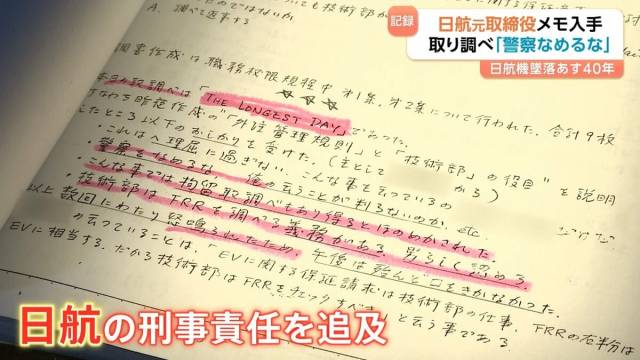 記録
日航元取締役メモ入手
取り調べ「警察なめるな」
日航機墜落あす40年
A. 調べて返事する
図書作成は職務权限規程中 才1条, 才2条について行われた. 合計9枚
本日の取調べは「THE LONGEST DAY」であった.
すなわち昨晩作成の"「外注管理規則」と「技術部」の役目"を説明
したところ以下のおしかりを受けた. (主として
・これはヘ理屈に過ぎない. こんな事を云っているの
かる)
警察をなめるな. 俺の云うことが判らないのか. etc.
・こんな事では拘留取調べもあり得るとほのめかされた.
・技術部はFRRを調べる義務がある.
以上 数回にわたり怒鳴られたため, 午後は殆んど口をきかなかった.
の云っていることは, 「EVに関する保証請求は技術部の仕事, FRRの右半分は
EVに相当する. だから技術部はFRRをチェックすべき と云う事である
日航の刑事責任を追及